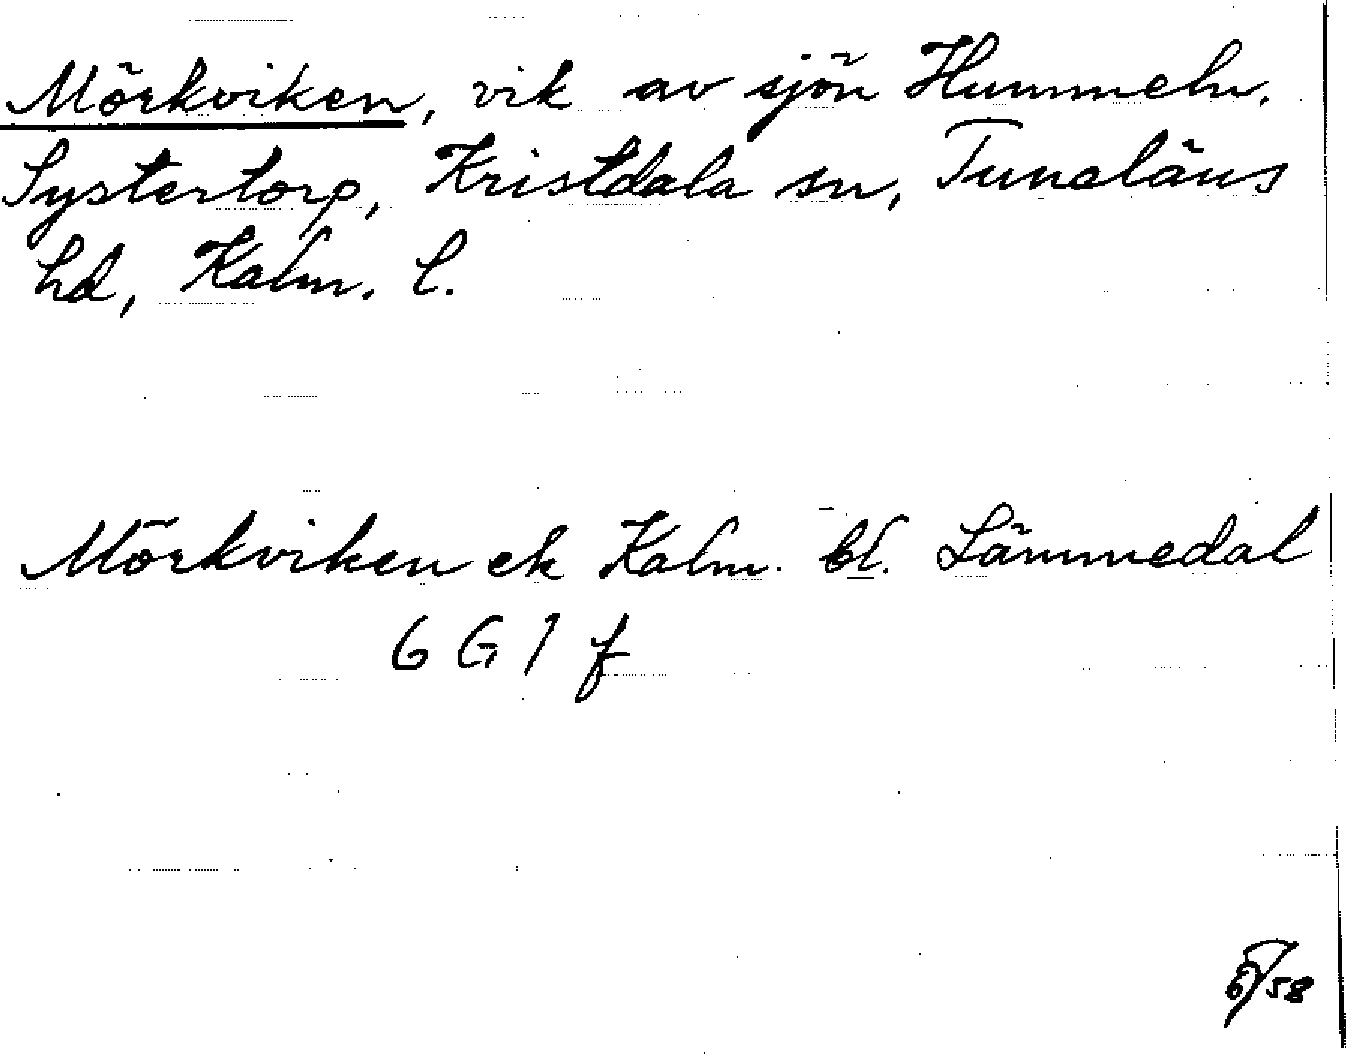 Mörkviken, vik av sjön Hummeln.
Systertorp, Kristdala sn, Tunaläns
hd, Kalm. l.
Mörkviken ek Kalm. bl. Lämmedal
6 G 1 f
/58